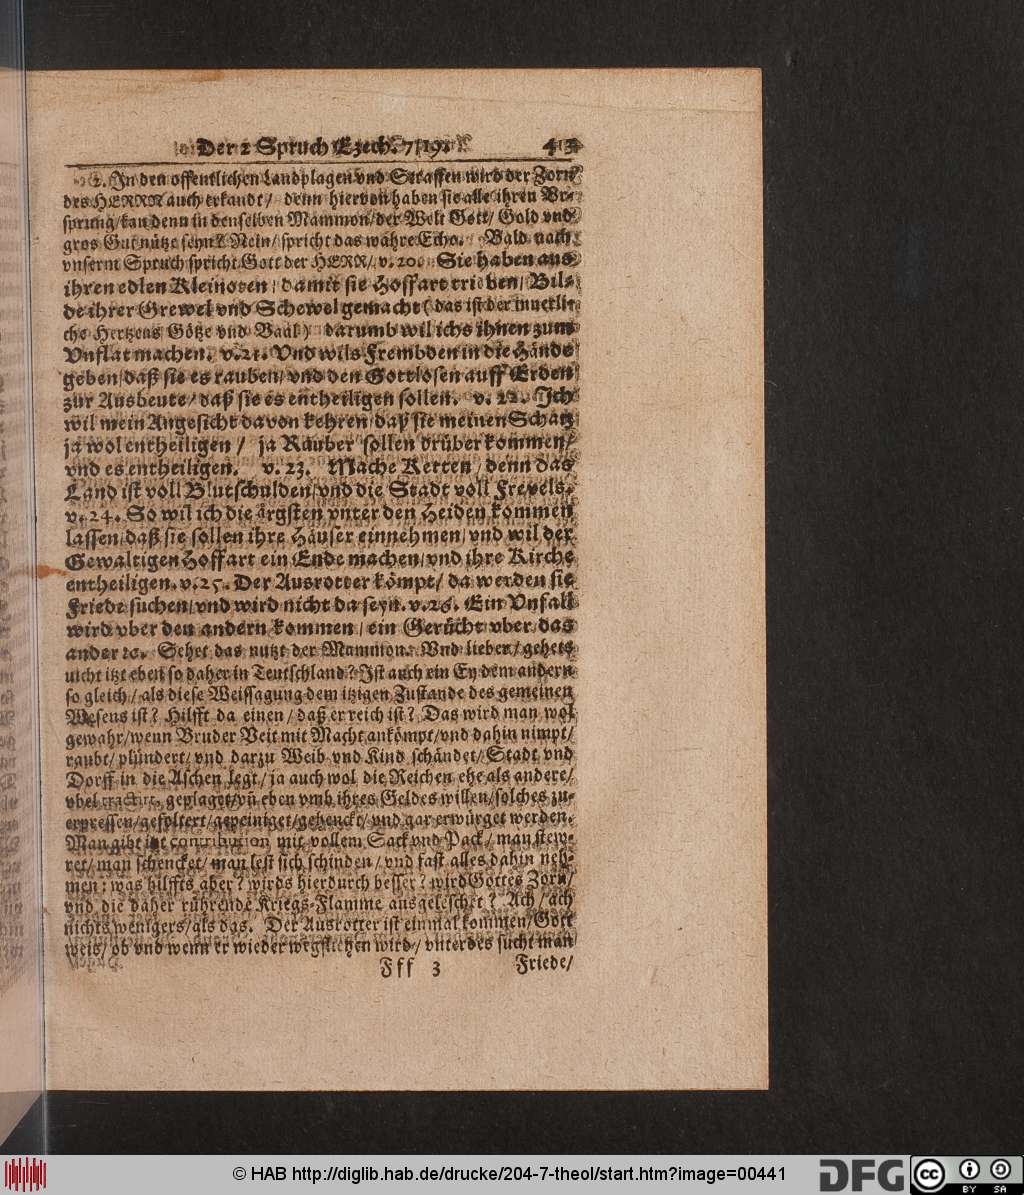 Der 2 Spruch Ezech. 7/19.
413
2. In den offentlichen Landplagen vnd Straffen wird der Zorn
des HERRN auch erkandt/ denn hiervon haben sie alle ihren Vr-
sprung/kan denn in denselben Mammon/der Welt Gott/ Gold vnd
gros Gut nütze seyn? Nein/ spricht das wahre Echo. Bald nach
vnserm Spruch spricht Gott der HERR/ v. 20. Sie haben aus
ihren edlen Kleinoten/ damit sie Hoffart trieben/ Bil-
de ihrer Grewel vnd Schewel gemacht (das ist der innerli-
che Hertzens Götze vnd Baal) darumb wil ichs ihnen zum
Vnflat machen. v. 21. Vnd wils Frembden in die Hände
geben/daß sie es rauben/ vnd den Gottlosen auff Erden
zur Ausbeute/ daß sie es entheiligen sollen. v. 22. Ich
wil mein Angesicht davon kehren/ daß sie meinen Schatz
ja wol entheiligen/ ja Räuber sollen drüber kommen/
vnd es entheiligen. v. 23. Mache Ketten/ denn das
Land ist voll Blutschulden/ vnd die Stadt voll Frevels.
v. 24. So wil ich die ärgsten vnter den Heiden kommen
lassen/ daß sie sollen ihre Häuser einnehmen/ vnd wil der
Gewaltigen Hoffart ein Ende machen/ vnd ihre Kirche
entheiligen. v. 25. Der Ausrotter kömpt/ da werden sie
Friede suchen/ vnd wird nicht da seyn. v. 26. Ein Vnfall
wird vber den andern kommen/ ein Gerücht vber das
ander ꝛc. Sehet das nutzt der Mammon. Vnd lieber/ gehets
nicht itzt eben so daher in Teutschland? Ist auch ein Ey dem andern
so gleich/ als diese Weissagung dem itzigen Zustande des gemeinen
Wesens ist? Hilfft da einen/ daß er reich ist? Das wird man wol
gewahr/wenn Bruder Veit mit Macht ankömpt/vnd dahin nimpt/
raubt/ plündert/ vnd darzu Weib vnd Kind schändet/ Stadt vnd
Dorff in die Aschen legt/ ja auch wol die Reichen ehe als andere/
vbel geplaget/vn̄ eben vmb ihres Geldes willen/solches zu-
erpressen/gefoltert/gepeiniget/gehenckt/ vnd gar erwürget werden.
Man gibt itzt contribution mit vollem Sack vnd Pack/ man stew-
ret/ man schencket/ man lest sich schinden/ vnd fast alles dahin neh-
men: was hilffts aber? wirds hierdurch besser? wird Gottes Zorn/
vnd die daher rührende Kriegs-Flamme ausgeleschet? Ach/ ach
nichts wenigers/ als das. Der Ausrotter ist einmal kommen/ Gott
weis/ ob vnd wenn er wieder wegfliehen wird/ vnterdes sucht man
Fff 3
Friede/
© HAB http://diglib.hab.de/drucke/204-7-theol/start.htm?image=00441
DFG
cc
BY SA